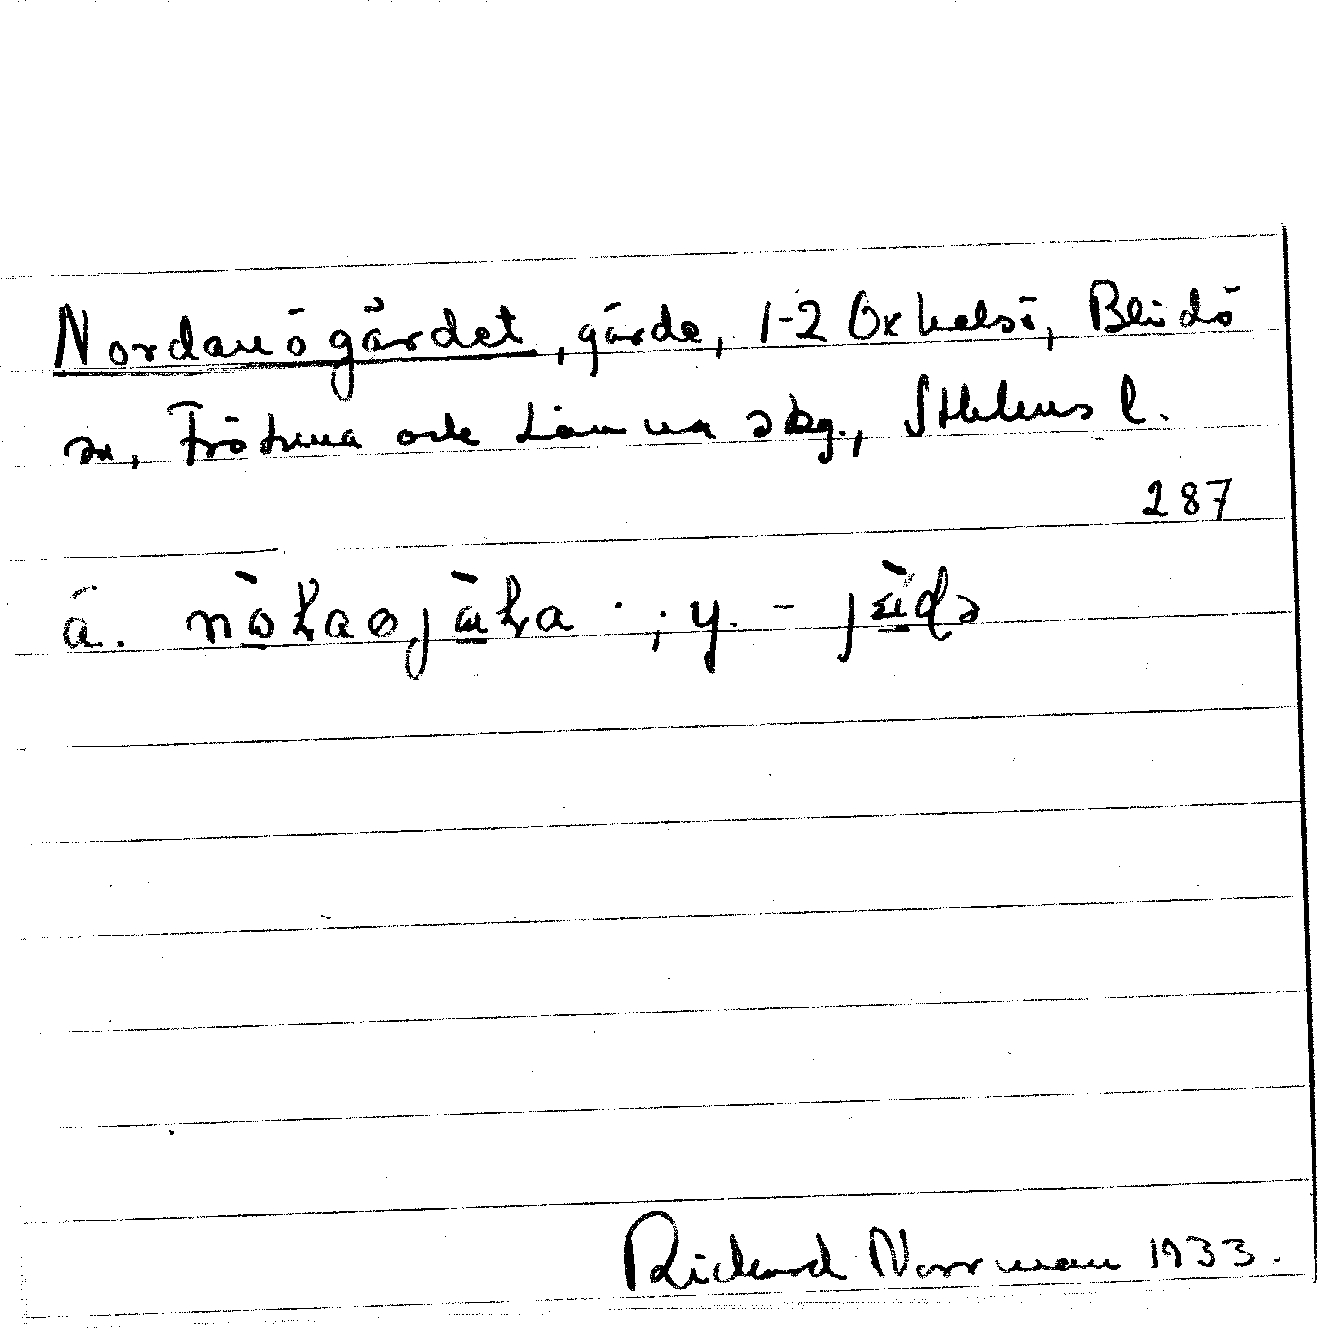 Nordanögärdet, gärde, 1-2 Oxhalsö, Blidö
sn, Frötuna och Länna skg., Sthlms l.
287
ä. ; y. -
Rickard Norrman 1933.